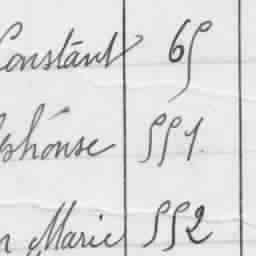 Constant 65
phonse 551.
Marie 552